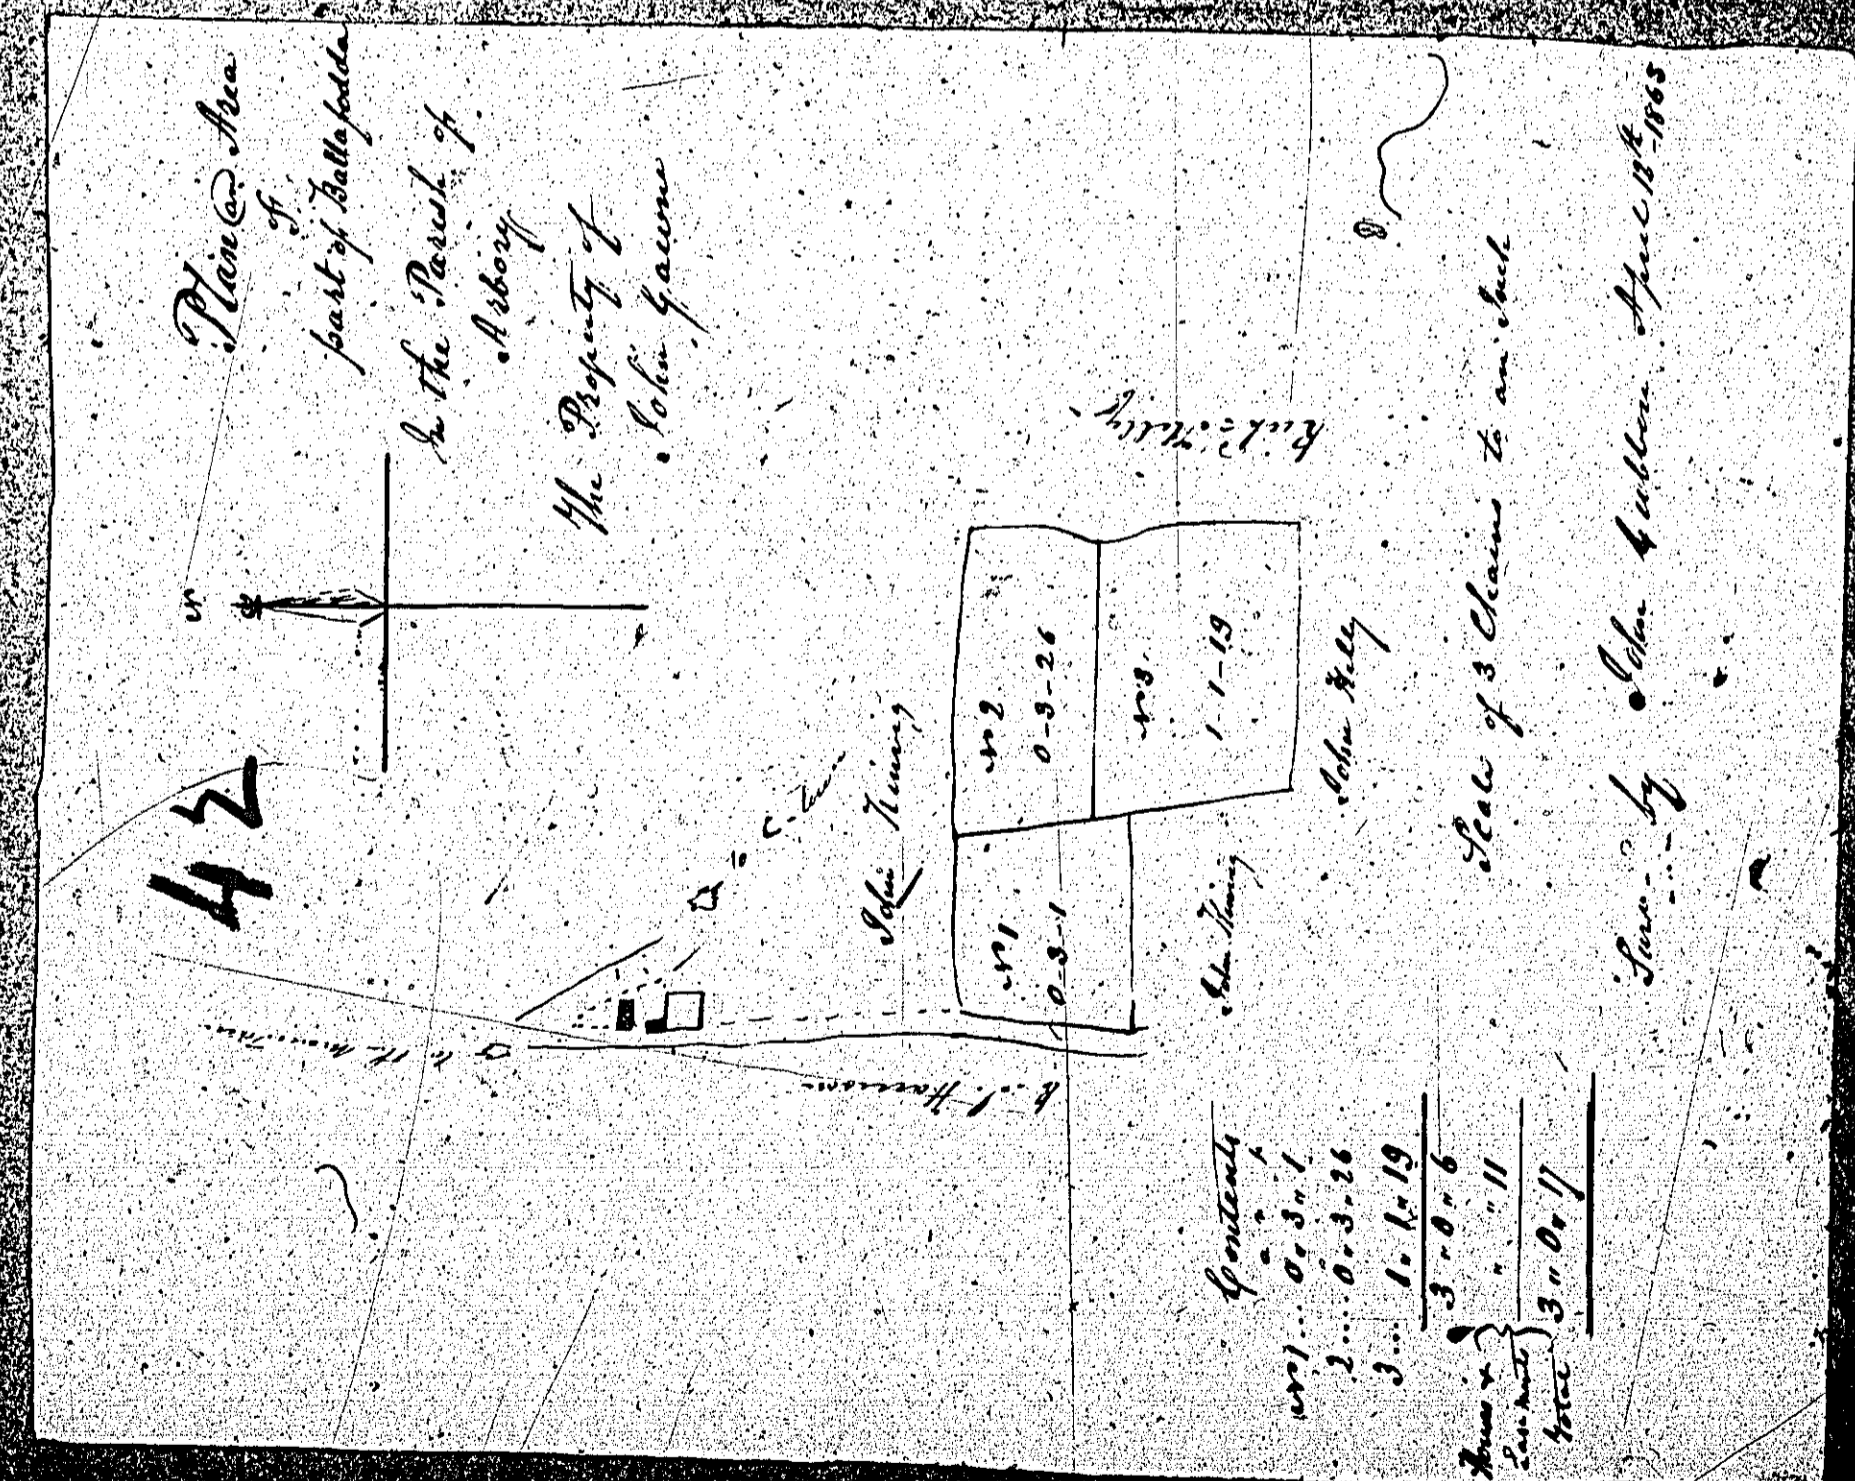 42
Plan and Area
of
part of Ballafodda
In the Parish of
Arbory
The Property of
John Gawne
N
to the mountain
to C-town
John Kinnig
R. J. Harrison
No 1
0-3-1
No 2
0-3-26
No 3
1-1-19
Richd Kelly
John Kinnig
John Kelly
Contents
a r p
No 1 ... 0 " 3 " 1
2 .... 0 " 3 " 26
3 ... 1 " 1 " 19
3 " 0 " 6
Houses &
Easements } " " 11
Total } 3 " 0 " 17
Scale of 3 Chains to an Inch
Surv- by John Gubbon April 13th 1865